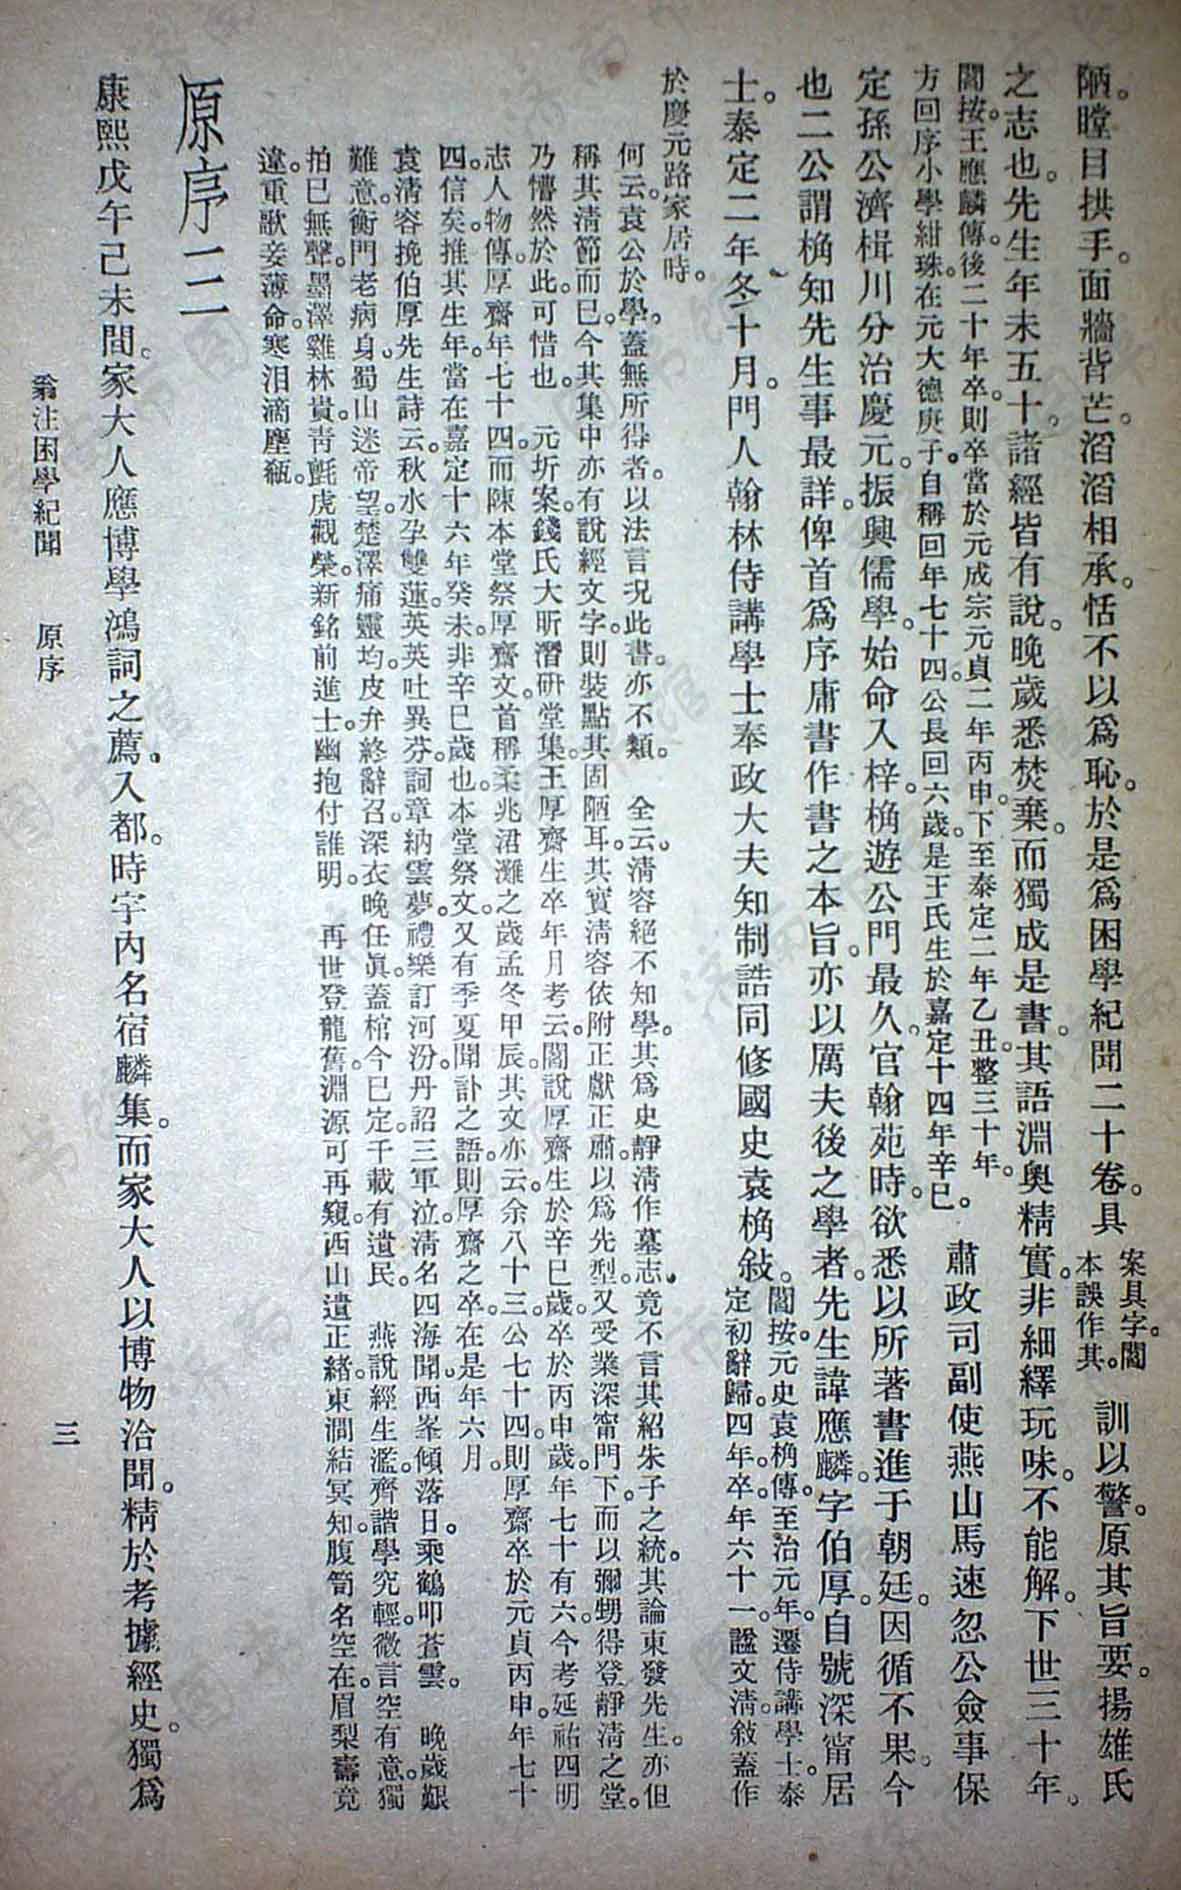 陋。瞠目拱手。面牆背芒。滔滔相承。恬不以爲恥。於是爲困學紀聞二十卷。具案具字。閻本誤作其。訓以警。原其旨要。揚雄氏
之志也。先生年未五十。諸經皆有說。晚歲悉焚棄。而獨成是書。其語淵奧精實。非細繹玩味。不能解。下世三十年。
閻按。王應麟傳。後二十年卒。則卒當於元成宗元貞二年丙申。下至泰定二年乙丑。整三十年。
方回序小學紺珠。在元大德庚子。自稱回年七十四。公長回六歲。是王氏生於嘉定十四年辛巳。肅政司副使燕山馬速忽公僉事保
定孫公濟楫川分治慶元。振興儒學。始命入梓。桷遊公門最久。官翰苑時。欲悉以所著書進于朝廷。因循不果。今
也二公謂桷知先生事最詳。俾首爲序。庸書作書之本旨。亦以厲夫後之學者。先生諱應麟。字伯厚。自號深甯居
士。泰定二年冬十月。門人翰林侍講學士奉政大夫知制誥同修國史袁桷敍。閻按。元史袁桷傳。至治元年。遷侍講學士。泰
定初辭歸。四年。卒。年六十一。諡文淸。敍蓋作
於慶元路家居時。
何云。袁公於學。蓋無所得者。以法言況此書。亦不類。　全云。淸容絕不知學。其爲史靜淸作墓志。竟不言其紹朱子之統。其論東發先生。亦但
稱其淸節而已。今其集中亦有說經文字。則裝點其固陋耳。其實淸容依附正獻正肅。以爲先型。又受業深甯門下。而以彌甥得登靜淸之堂。
乃懵然於此。可惜也。　元圻案。錢氏大昕潛硏堂集。王厚齋生卒年月考云。閻說厚齋生於辛巳歲。卒於丙申歲。年七十有六。今考延祐四明
志人物傳。厚齋年七十四。而陳本堂祭厚齋文。首稱柔兆涒灘之歲孟冬甲辰。其文亦云。余八十三。公七十四。則厚齋卒於元貞丙申。年七十
四。信矣。推其生年。當在嘉定十六年癸未。非辛巳歲也。本堂祭文。又有季夏聞訃之語。則厚齋之卒。在是年六月。
袁淸容挽伯厚先生詩云。秋水孕雙蓮。英英吐異芬。詞章納雲夢。禮樂訂河汾。丹詔三軍泣。淸名四海聞。西峯傾落日。乘鶴叩蒼雲。　晚歲艱
難意。衡門老病身。蜀山迷帝望。楚澤痛靈均。皮弁終辭召。深衣晚任眞。蓋棺今已定。千載有遺民。　燕說經生濫。齊諧學究輕。微言空有意。獨
拍已無聲。墨澤雞林貴。靑氈虎觀榮。新銘前進士。幽抱付誰明。　再世登龍舊。淵源可再窺。西山遺正緒。東澗結冥知。腹笥名空在。眉梨壽竟
違。重歌妾薄命。寒泪滴塵甁。
原序二
康熙戊午己未間。家大人應博學鴻詞之薦。入都。時宇內名宿麟集。而家大人以博物洽聞。精於考據經史。獨爲
翁注困學紀聞　原序
三